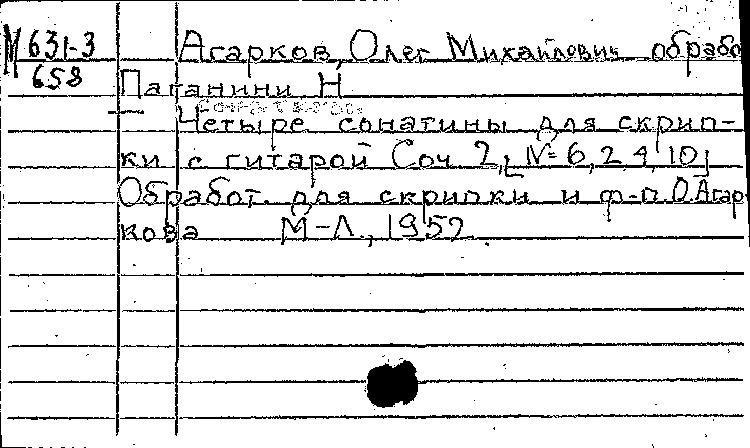 М 631-3
658
Агарков, Олег Михайлович обрабо
Паганини Н
Сонатины.
Четыре сонатины для скрип-
ки с гитарой Соч 2, [№ 6, 2, 4, 10]
Обработ. для скрипки и ф-п. О. Агар
кова М-Л., 1952